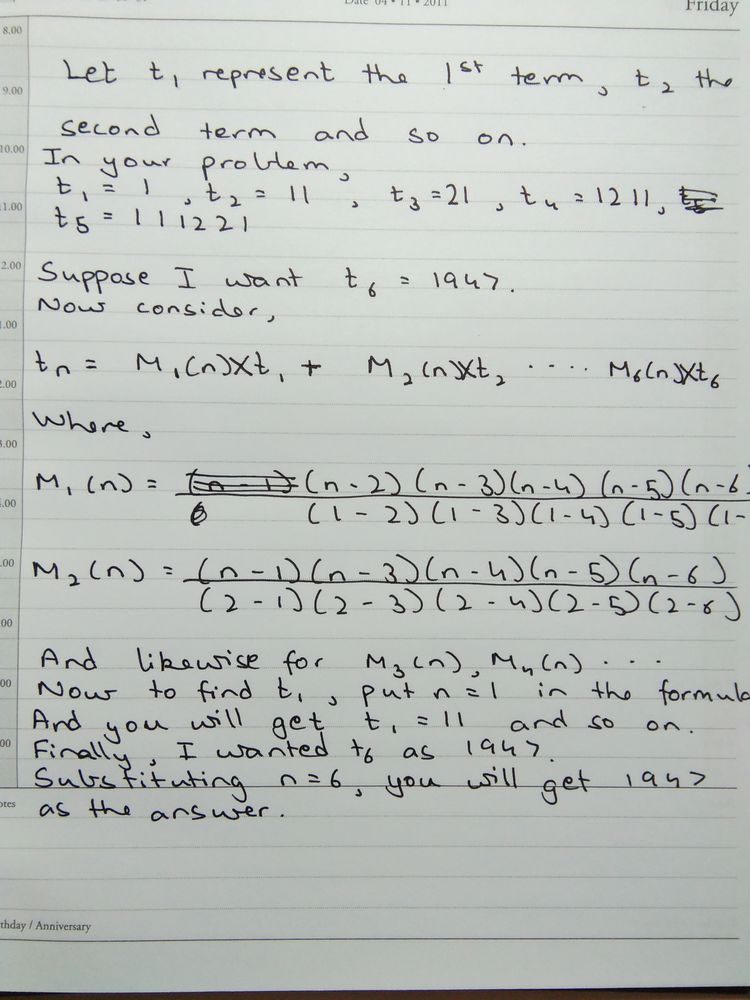 Date 04 • 11 • 2011
Friday
8.00
Let t₁ represent the 1st term, t₂ the
9.00
second term and so on.
10.00
In your problem,
t₁ = 1 , t₂ = 11 , t₃ = 21 , t₄ = 1211,
11.00
t₅ = 111221
2.00
Suppose I want t₆ = 1947.
Now consider,
1.00
tₙ = M₁(n)Xt₁ + M₂(n)Xt₂ ····· M₆(n)Xt₆
2.00
Where,
3.00
M₁(n) = (n-2)(n-3)(n-4)(n-5)(n-6
4.00
(1-2)(1-3)(1-4)(1-5)(1-
.00
M₂(n) = (n-1)(n-3)(n-4)(n-5)(n-6)
(2-1)(2-3)(2-4)(2-5)(2-6)
00
And likewise for M₃(n), M₄(n) ···
00
Now to find t₁, put n=1 in the formula
And you will get t₁ = 11 and so on.
00
Finally, I wanted t₆ as 1947.
Substituting n=6, you will get 1947
otes
as the answer.
thday / Anniversary